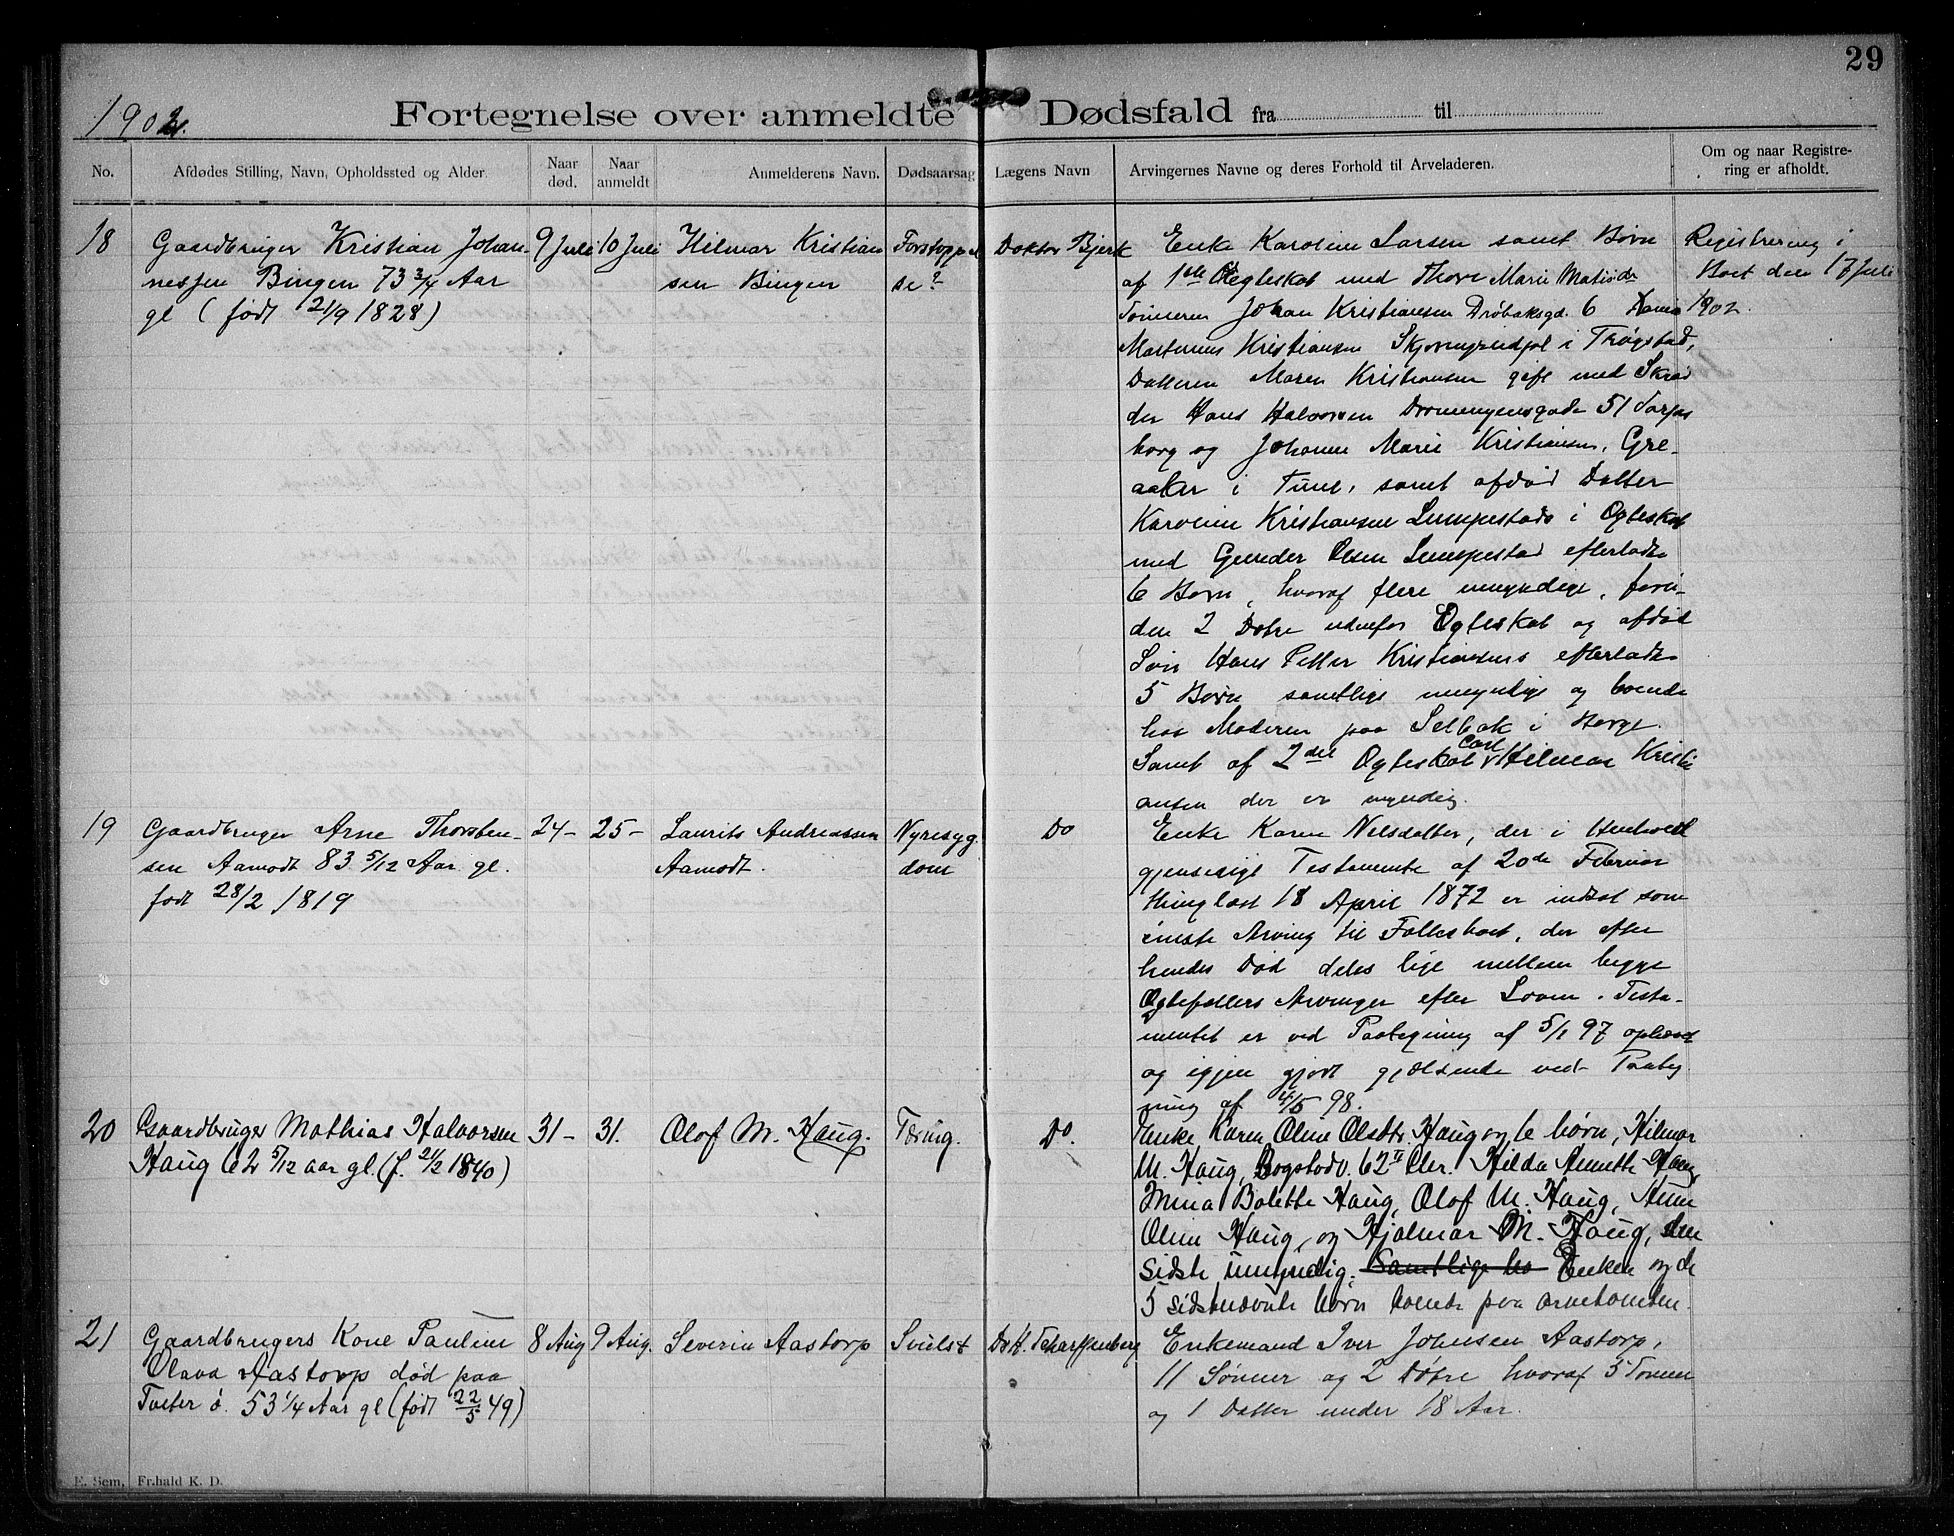 29
1902.
Fortegnelse over anmeldte Dødsfald fra til
No.
Afdødes Stilling, Navn, Opholdssted og Alder.
Naar død.
Naar anmeldt
Anmelderens Navn.
Dødsaarsag
Lægens Navn
Arvingernes Navne og deres Forhold til Arveladeren.
Om og naar Registre-
ring er afholdt.
18
Gaardbruger Kristian Johan-
nessen Bingen 73 3/4 Aar
gl (født 21/9 1828)
9 Juli
10 Juli
Hilmar Kristian
sen Bingen
Forstoppel
se?
Doktor Bjerk
Enke Karoline Larsen samt Børn
af 1ste Ægteskab med Thore Marie Matisdr
Sønnerne Johan Kristiansen Drøbaksgd. 6
Martinius Kristiansen i Trøgstad,
Datteren Maren Kristiansen gift med Skræd
der Hans Halvorsen 51 Sarps
borg og Johanne Marie Kristiansen, Gre-
aaker i Tune, samt afdød Datter
Karoline Kristiansen Lunpestads i Ægteskab
med Gunder Olsen Lunpestad efterladte
6 Børn, hvoraf flere umyndige, foru-
den 2 Døtre udenfor Ægteskab og afdød
Søn Hans Petter Kristiansens efterladte
5 Børn samtlige umyndige og boende
hos Moderen paa Selbak i Borge.
Samt af 2det Ægteskab Carl Hilmar Kristi
ansen der er myndig.
Registrering i
Boet den 17 Juli
1902.
19
Gaardbruger Arne Thorsten-
sen Aamodt 83 5/12 Aar gl.
født 28/2 1819
24-
25-
Laurits Andreassen
Aamodt.
Nyresyg
dom
Do
Enke Karen Nilsdatter, der i Henhold
gjensidigt Testamente af 20de Februar
thinglæst 18 April 1872 er indsat som
eneste Arving til Fællesboet, der efter
hendes Død deles lige mellem begge
Ægtefællers Arvinger efter Loven. Testa-
mentet er ved Paategning af 5/1 97 ophævet
og igjen gjort gjældende ved Paateg
ning af 4/5 98.
20
Gaardbruger Mathias Halvorsen
Haug 62 5/12 aar gl. (f. 21/2 1840)
31-
31.
Olof M. Haug.
Tæring.
Do.
Enke Karen Oline Olsdtr. Haug og 6 børn, Hilmar
M. Haug, Bogstadv. 62 II Chr. Hilda Annette Haug,
Mina Bolette Haug, Olof M. Haug, Anna
Oline Haug, og Hjalmar M. Haug, den
sidste umyndig. Samtlige bo Enken og de
5 sidstnævnte børn boende paa Arnetomten.
21
Gaardbrugers Kone Pauline
Olava Aastorp død paa
Tofter ø. 53 1/4 Aar gl (født 22/5 49)
8 Aug
9 Aug.
Severin Aastorp
Svulst
Dokt. Scharffenberg
Enkemand Iver Johnsen Aastorp,
11 Sønner og 2 Døtre hvoraf 5 Sønner
og 1 Datter under 18 Aar.
E. Sem, Fr.hald K. D.